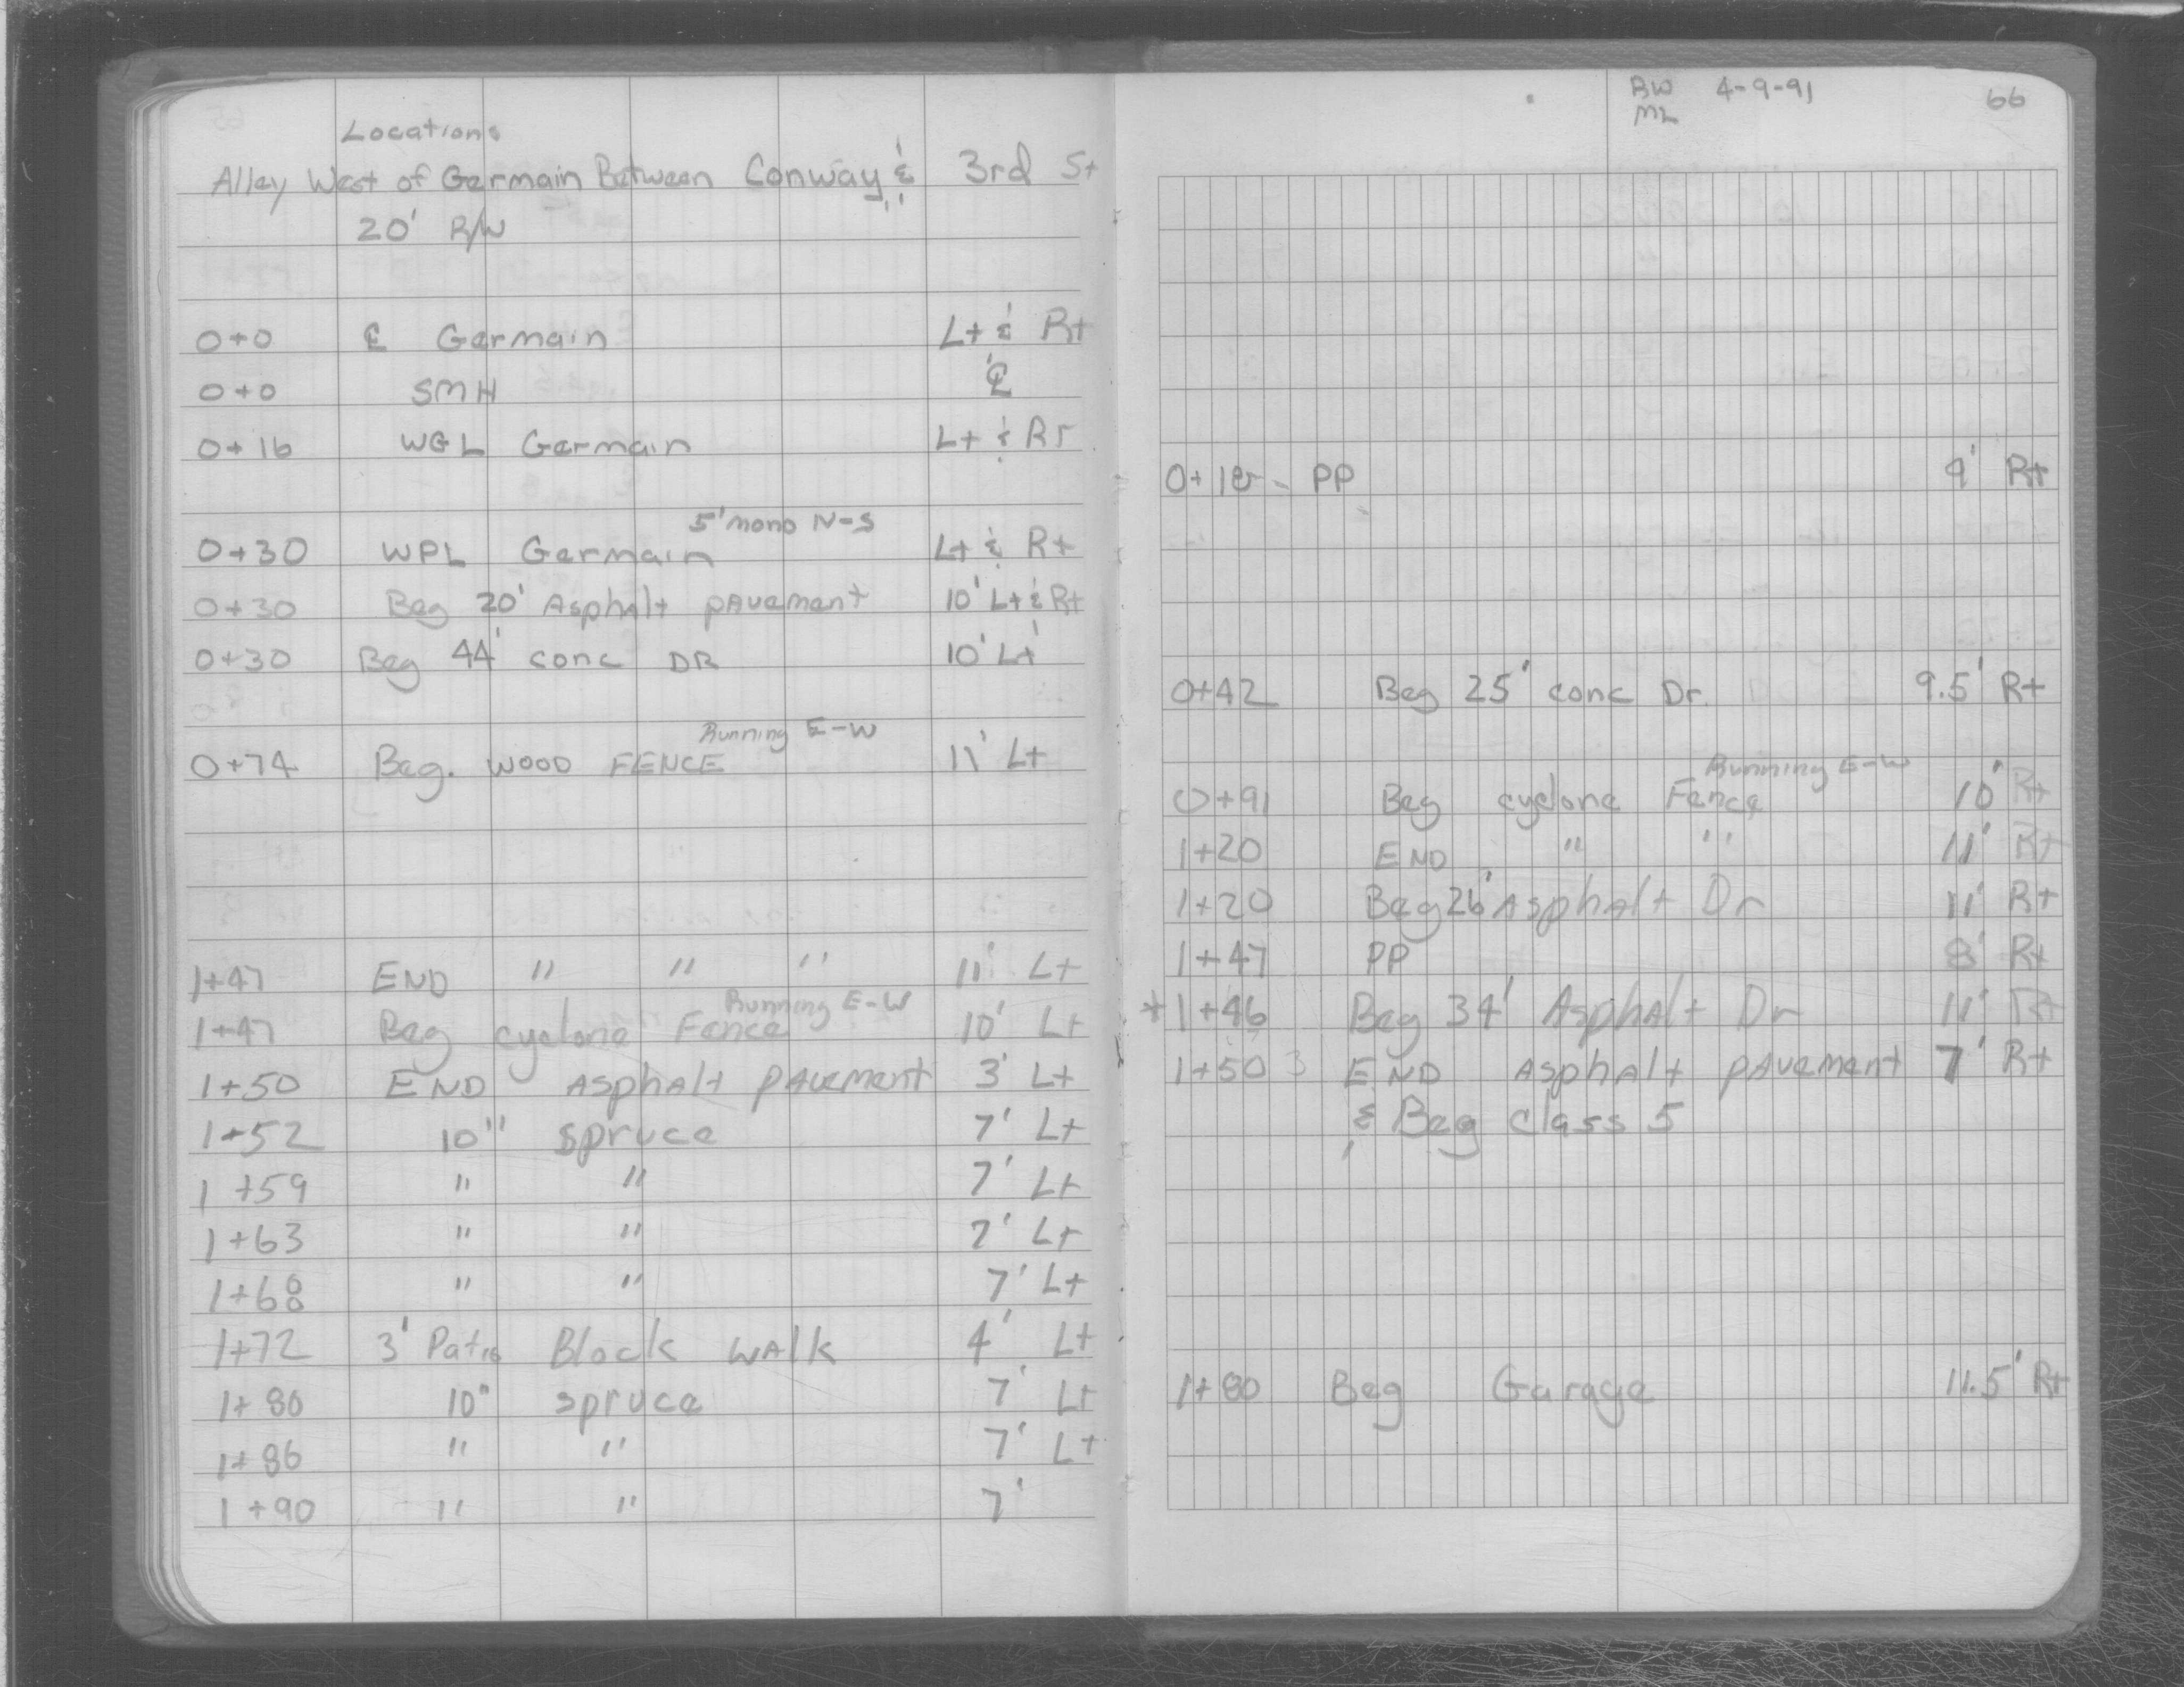 Locations
Alley West of Germain Between Conway & 3rd St
20' R/W
0+0 ℄ Germain Lt & Rt
0+0 SMH ℄
0+16 WGL Germain Lt & Rt
5' mono N-S
0+30 WPL Germain Lt & Rt
0+30 Beg 20' Asphalt pavement 10' Lt & Rt
0+30 Beg 44' conc DR 10' Lt
Running E-W
0+74 Beg. WOOD FENCE 11' Lt
1+47 END " " " 11' Lt
Running E-W
1+47 Beg cyclone Fence 10' Lt
1+50 END Asphalt pavement 3' Lt
1+52 10" spruce 7' Lt
1+59 " " 7' Lt
1+63 " " 7' Lt
1+68 " " 7' Lt
1+72 3' Patio Block walk 4' Lt
1+80 10" spruce 7' Lt
1+86 " " 7' Lt
1+90 " " 7'
BW 4-9-91 66
ML
0+18 - PP 9' Rt
0+42 Beg 25' conc Dr. 9.5' Rt
Running E-W
0+91 Beg cyclone Fence 10' Rt
1+20 END " " 11' Rt
1+20 Beg 26' Asphalt Dr 11' Rt
1+47 PP 8' Rt
*1+46 Beg 34' Asphalt Dr 11' Rt
1+50 END Asphalt pavement 7' Rt
& Beg class 5
1+80 Beg Garage 11.5' Rt